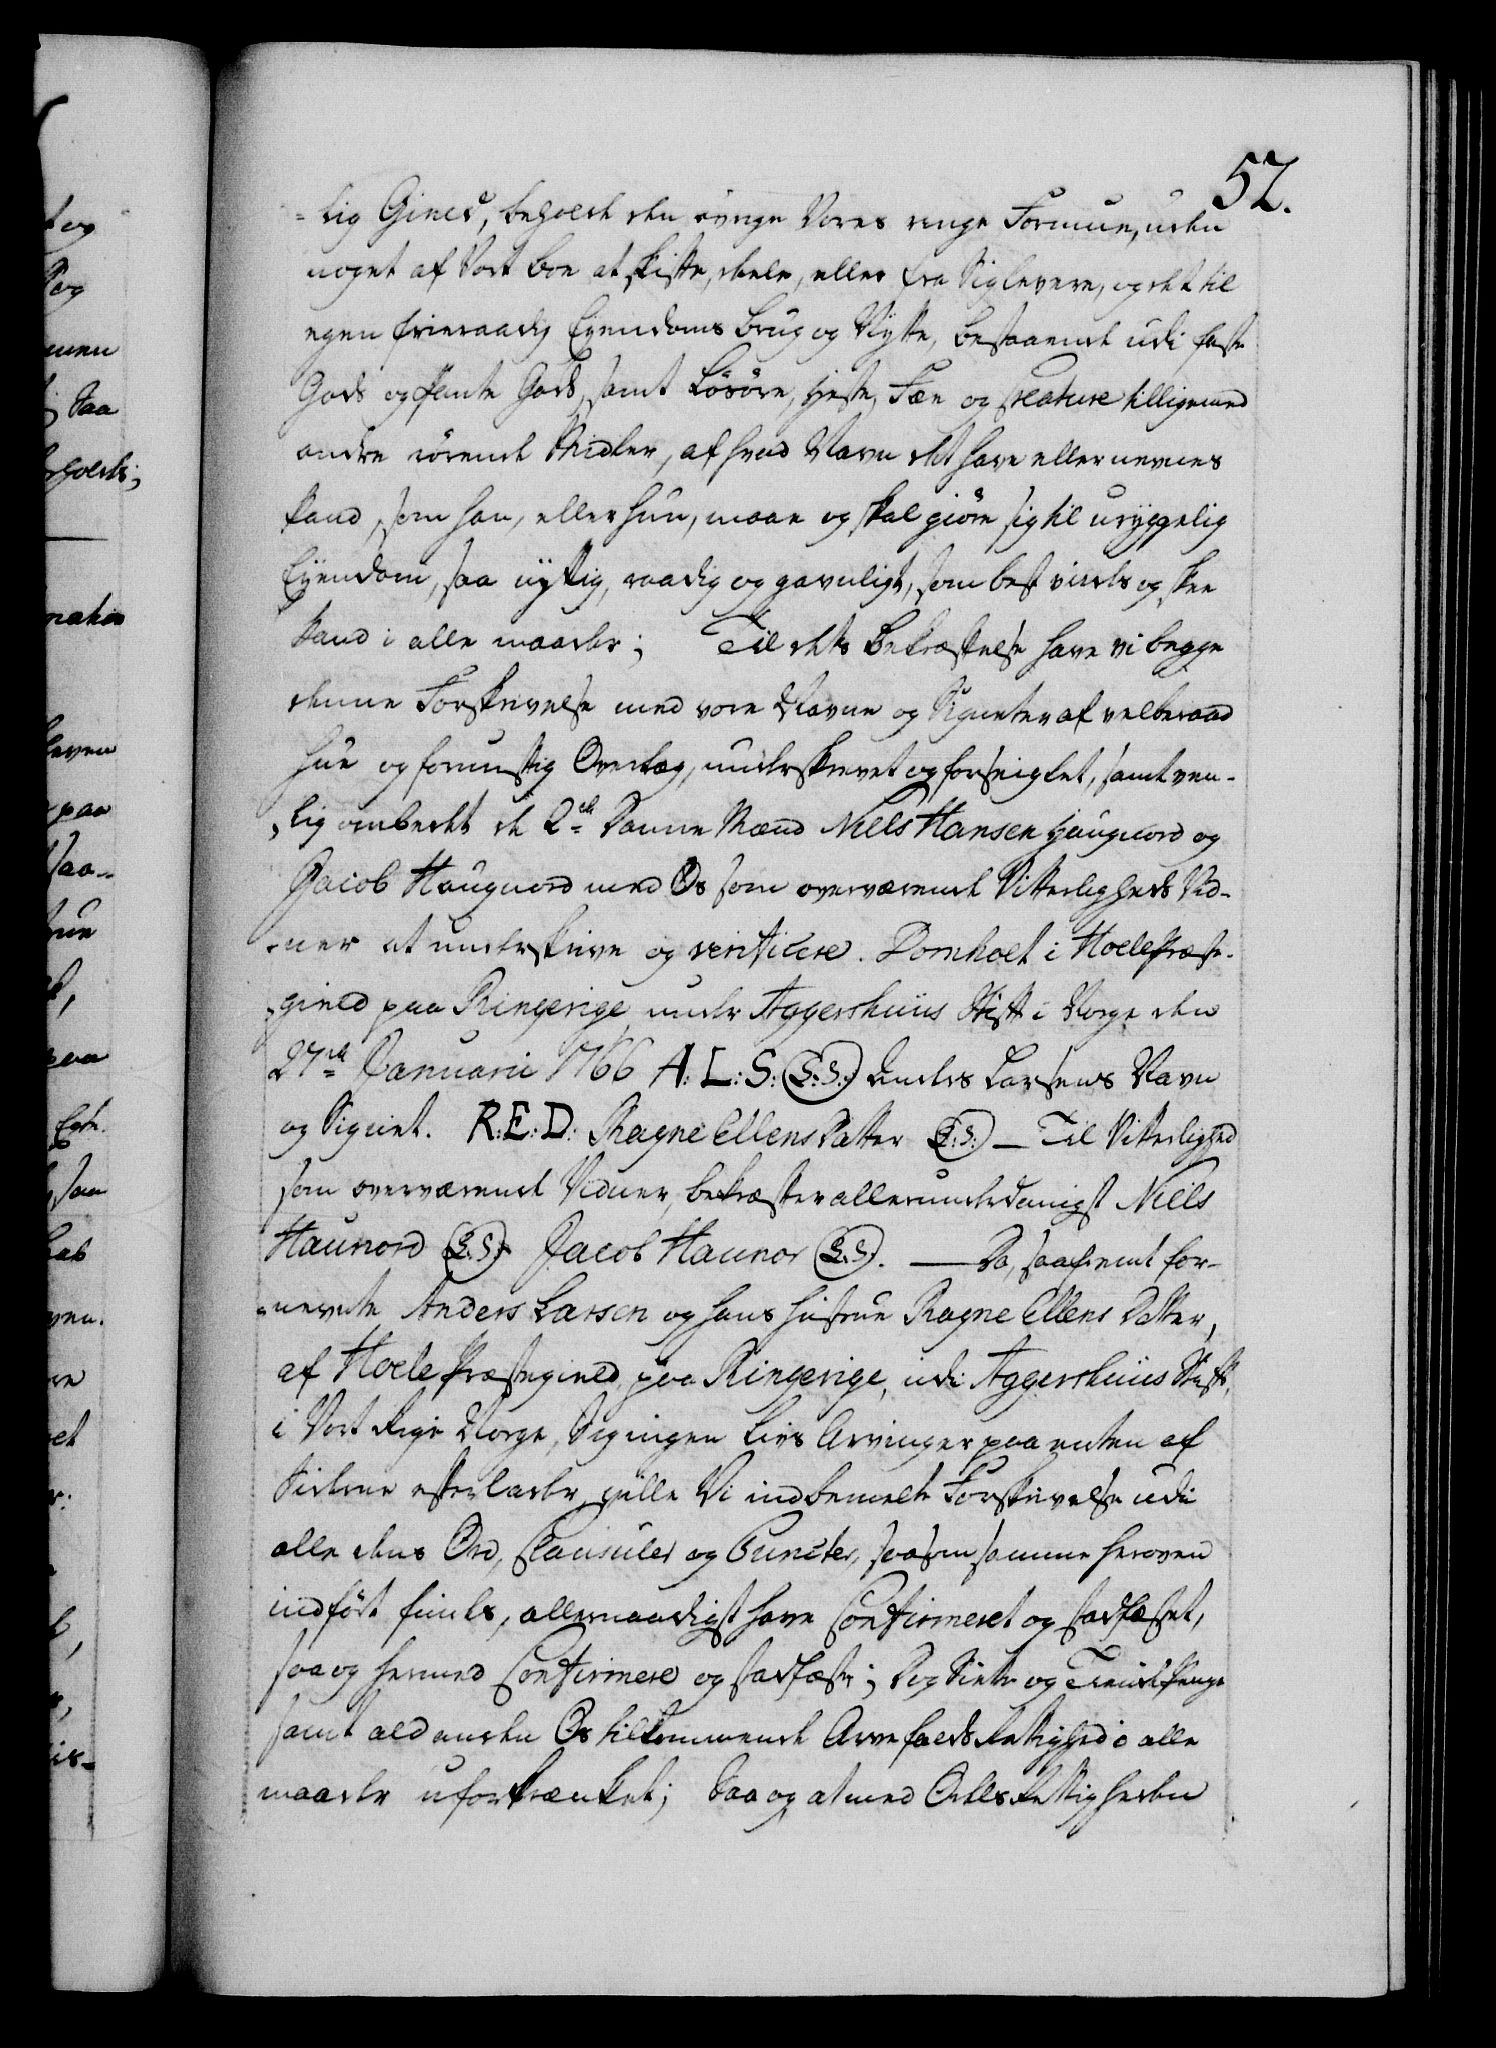 52.
-tig Gineд, beholde den øvrige Vores ringe Formue, uden
noget af Vort Boe at skifte, deele, eller fra Sig levere, og det til
egen frieraadig Eyendoms Brug og Nytte, bestaaende udi faste
Gods og Pante Gods, samt Løsøre, Heste, Fæe og Creature tilligemed
andre rørende Midler, af hvad Navn det have eller nevnes
kand, som han, eller hun, maae og skal giøre sig til uryggelig
Eyendom, saa nyttig, raadig og gavnligt, som best vides og skee
kand i alle maader; Til dets Bekræftelse have vi begge
denne Forskrivelse med vore Navne og Signeter af velberaad
Hue og fornuftig Overlæg, underskrevet og forseiglet, samt ven-
-lig ombedet de 2de Danne Mænd Niels Hansen Haugnord og
Jacob Haugnord med Os som overværende Vitterligheds Vid-
-ner at underskrive og verificere. Domholt i Hoele Præste-
-gield paa Ringerige under Aggershuus Stift i Norge den
27de Januarii 1766 A: L: S: (L: S:) Anders Larsens Navn
og Signet. R: E: D: Ragne Ellens Datter (L: S:) – Til Vitterlighed
som overværende Vidner, bekræfter allerunderdanigst Niels
Haunord (L. S.) Jacob Haunor (L. S.). — Da, saafremt for-
-nevnte Anders Larsen og hans Hustrue Ragne Ellens Datter,
af Hoele Præstegield paa Ringerige, udi Aggershuus Stift,
i Vort Rige Norge, Sig ingen Livs Arvinger paa enten af
Siderne efterlader, ville Vi indbemelte Forskrivelse udi
alle dens Ord, Clausuler og Puncter, saasom samme heroven
indført findes, allernaadigst have Confirmeret og stadfæstet,
saa og hermed Confirmere og stadfæste; Dog Siette og Tiende Penge
samt ald anden Os tilkommende Arvefalds Rettighed i alle
maader uforkrænket; Saa og at med Odels Rettigheden